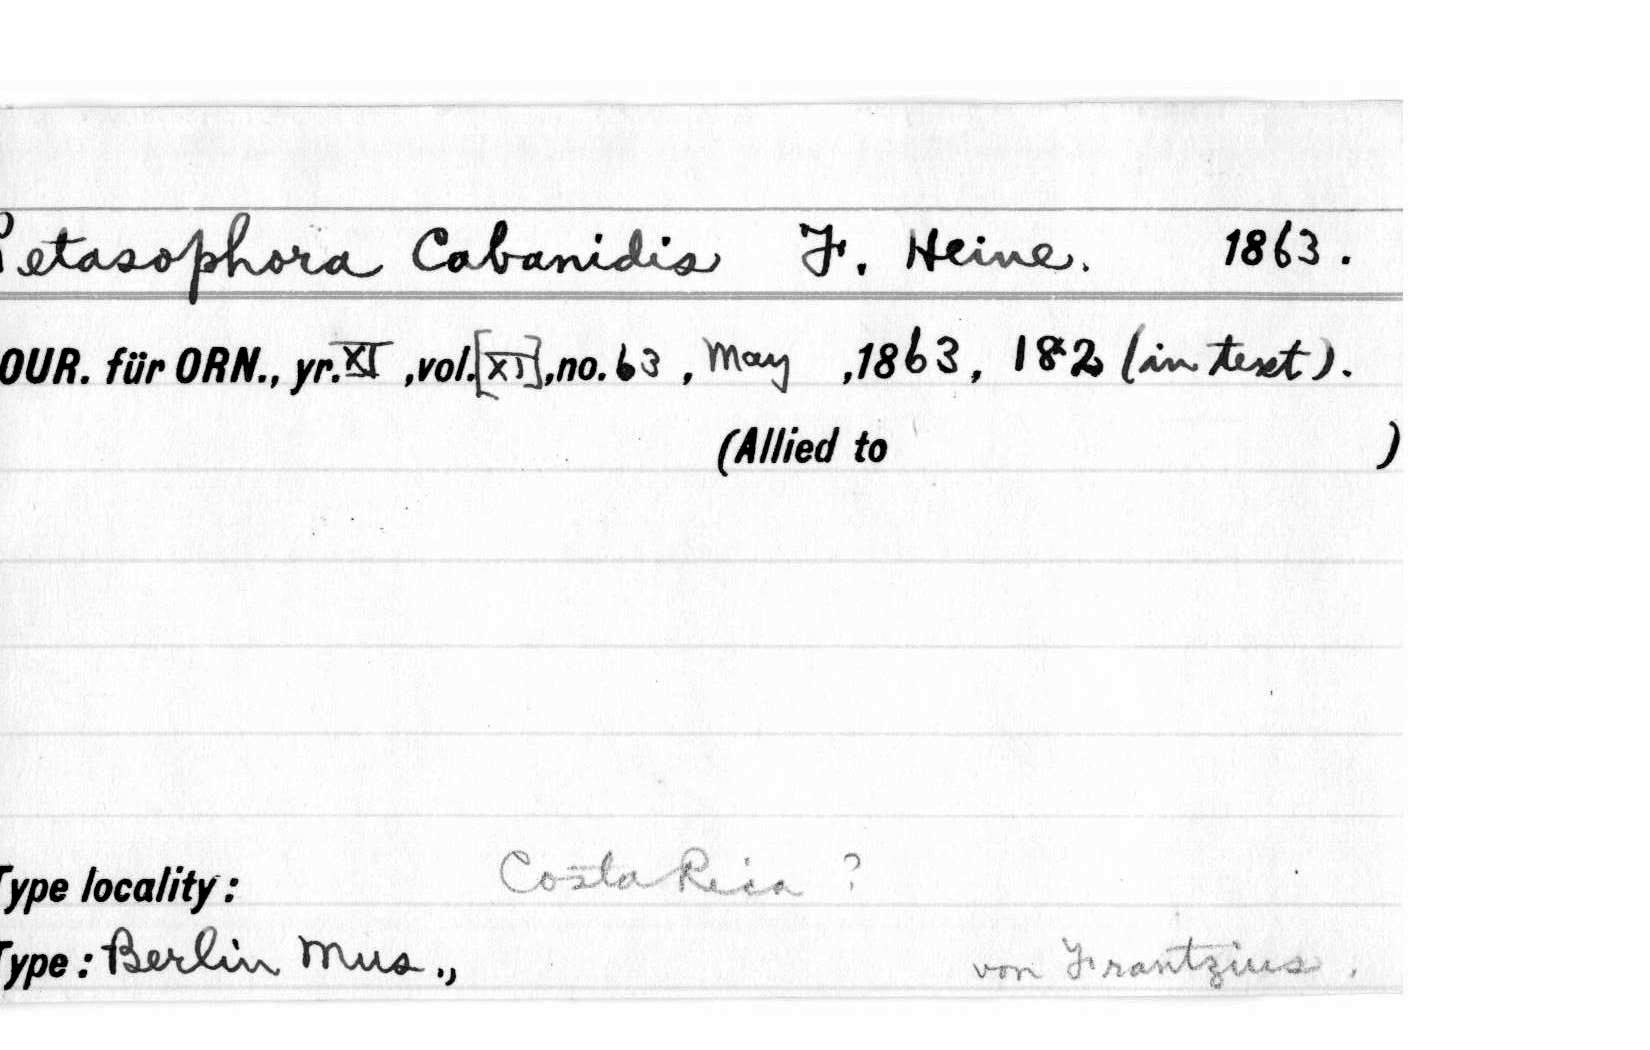 Petasophora Cabanidis F. Heine. 1863.
OUR. für ORN., yr. XI, vol. [XI], no. 63, May, 1863, 182 (in text).
(Allied to )
Type locality: Costa Rica ?
Type: Berlin Mus., von Frantzius.